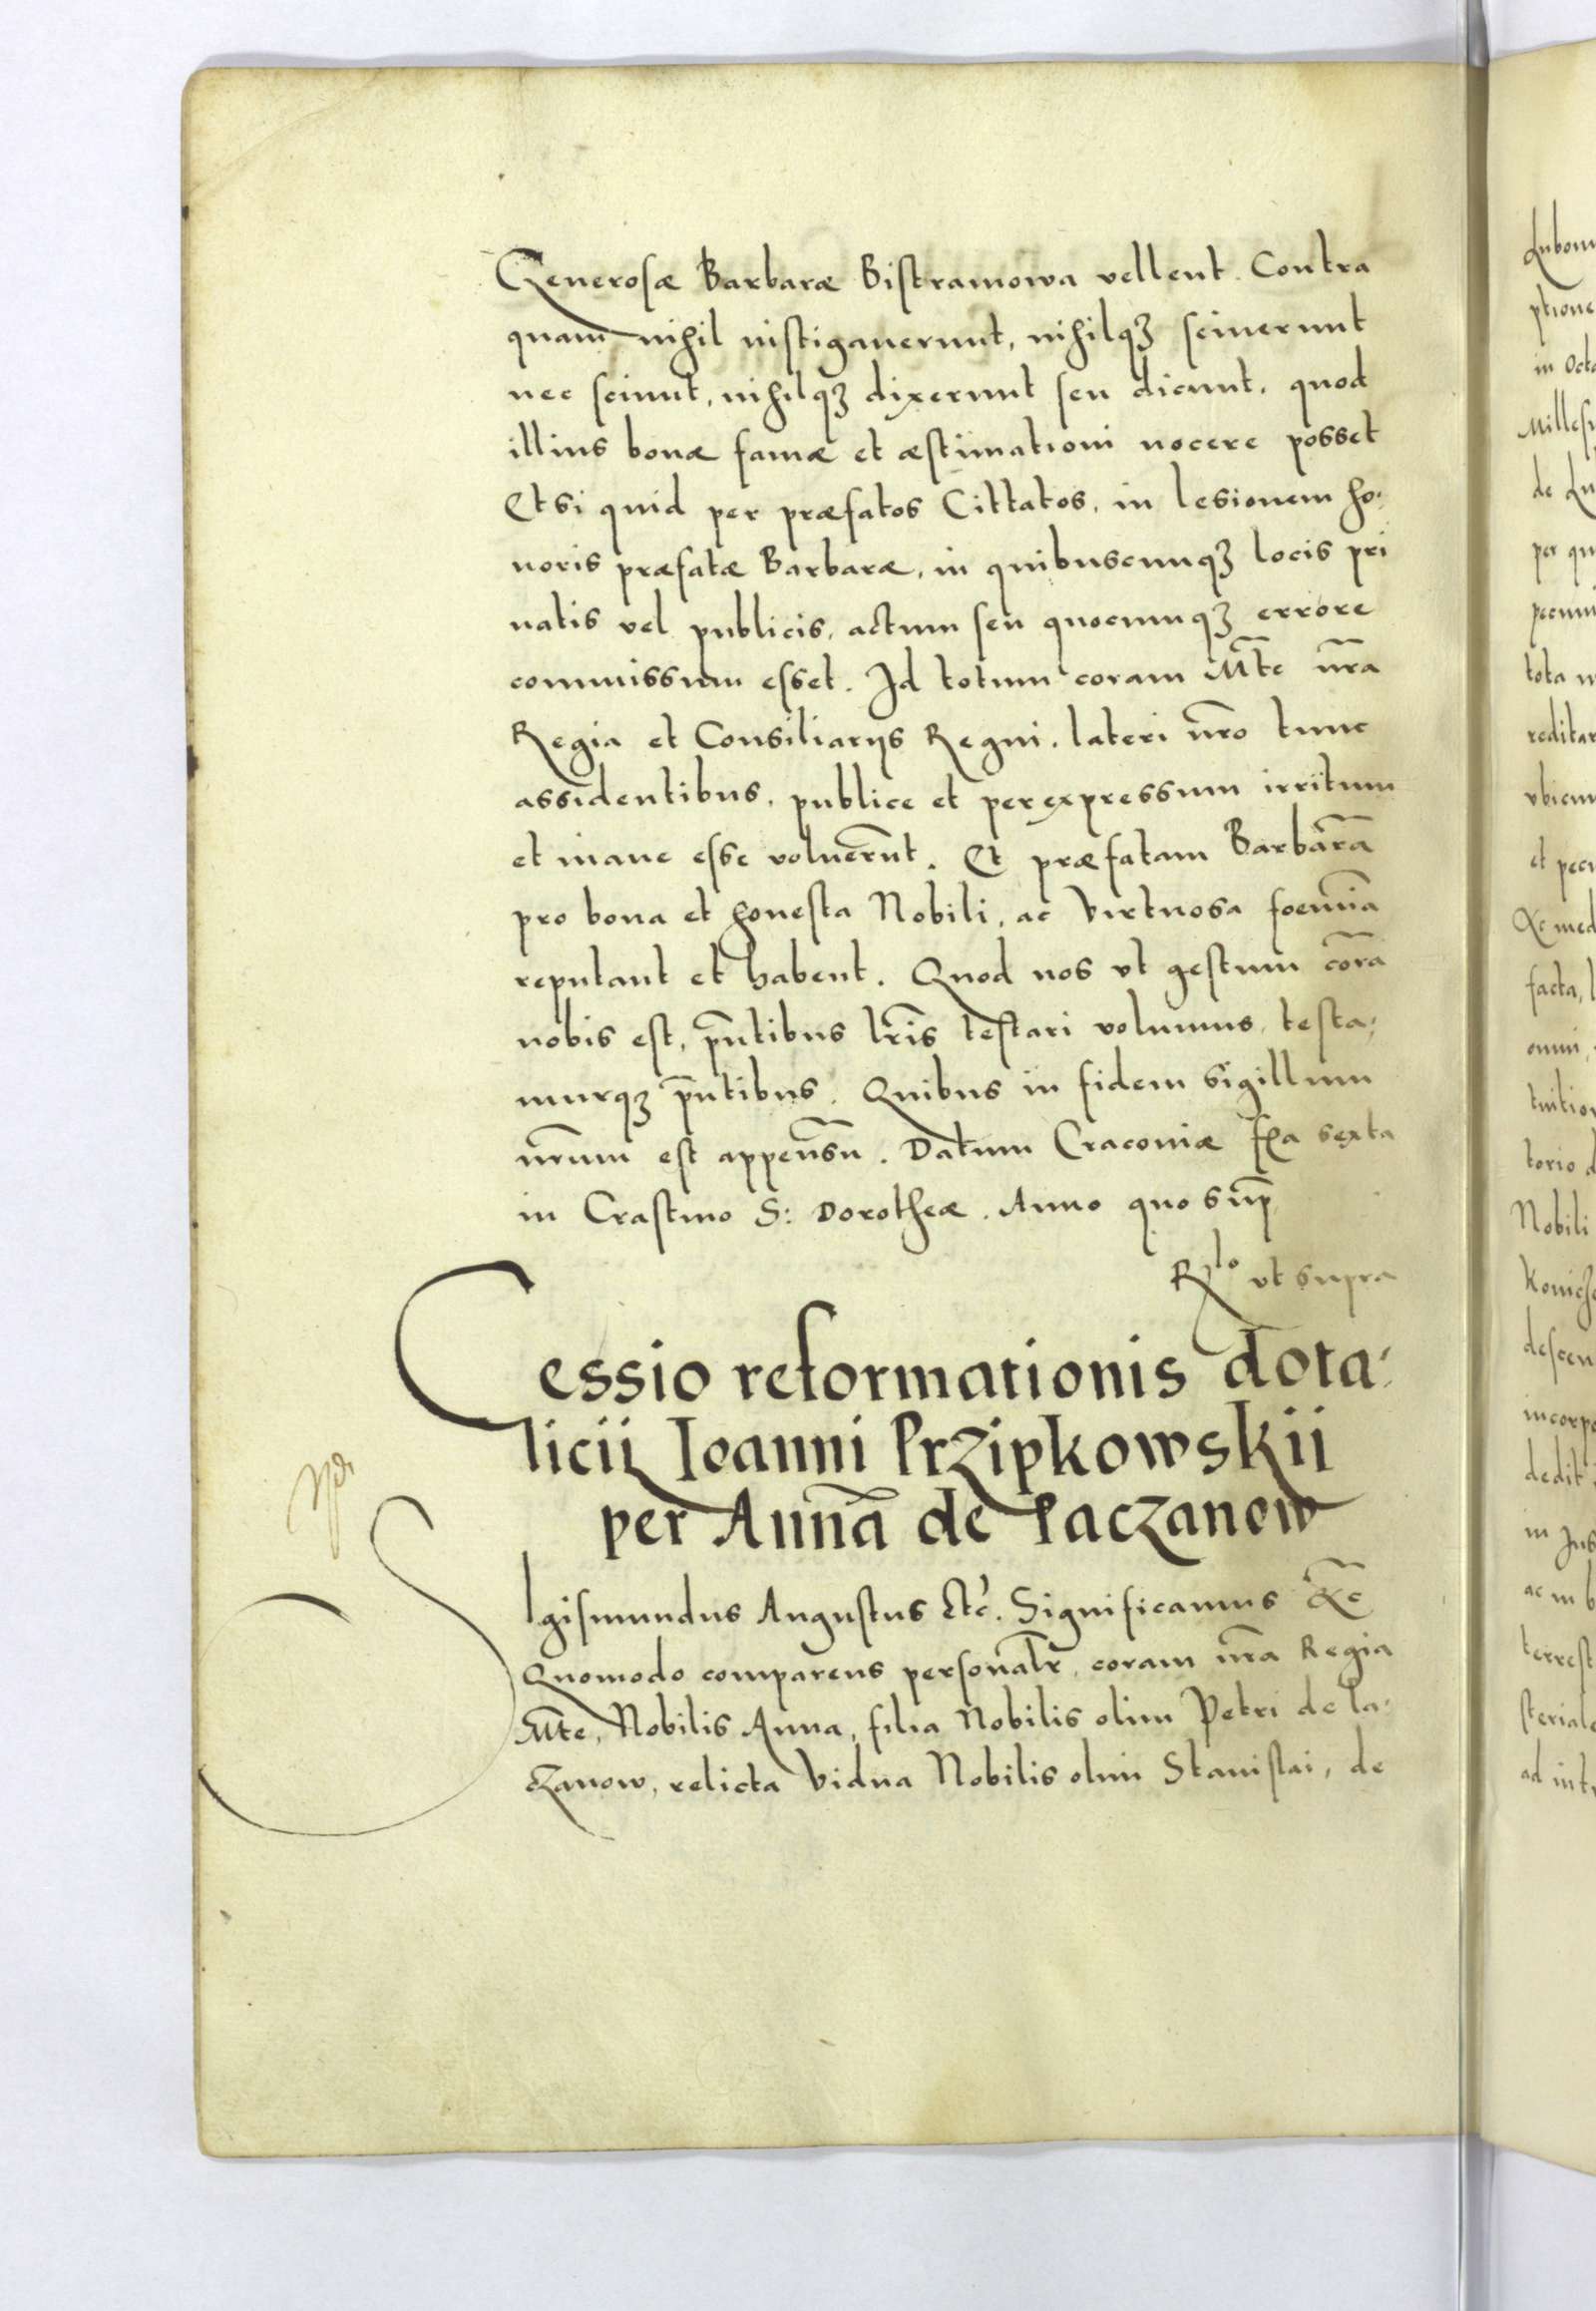 Generosæ Barbaræ Bistramowa vellent. Contra
quam nihil instigauerunt, nihilqꝫ sciuerunt
nec sciunt, nihilqꝫ dixerunt seu dicunt, quod
illius bonæ famæ et æstimationi nocere posset
Et si quid per præfatos Cittatos, in lesionem ho,
noris præfatæ Barbaræ, in quibuscunqꝫ locis pri
uatis vel publicis, actum seu quocumqꝫ errore
commissum esset. Id totum coram M̃te nr̃a
Regia et Consiliarijs Regni, lateri nr̃o tunc
assidentibus, publice et per expressum irritum
et inane esse voluerũt. Et præfatam Barbarã
pro bona et honesta Nobili, ac virtuosa foeminã
reputant et habent. Quod nos vt gestum corã
nobis est, pñtibus lr̃is testari volumus, testa,
murqꝫ pñtibus. Quibus in fidem sigillum
nr̃um est appensũ. Datum Cracoviæ fr̃a sexta
in Crastino S: Dorotheæ. Anno quo sup̃
Rlo vt supra
Cessio reformationis dota,
licii Ioanni Przipkowskii
per Annã de Laczanow
SIgismundus Augustus Etc̃. Significamus &c̃
Quomodo comparens personalr̃, coram nr̃a Regia
M̃te, Nobilis Anna, filia Nobilis olim Petri de La,
czanow, relicta vidua Nobilis olim Stanislai, de
Lubom
ptione
in Octa
Millesi
de Lu
per qu
pecuni
tota
reditar
vbicun
et pecu
&c med
facta,
omni,
tuition
torio d
Nobili
descen
incorpo
dedit
in Jus
ac in b
terrest
steriale
ad int